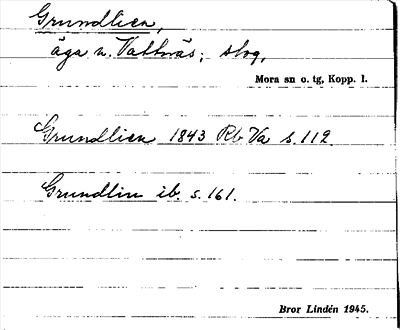 Grundlien,
äga n. Vattnäs; skog,
Mora sn o. tg, Kopp. l.
Grundlien 1843 Rb Va s. 112
Grundlin ib. s. 161.
Bror Lindén 1945.